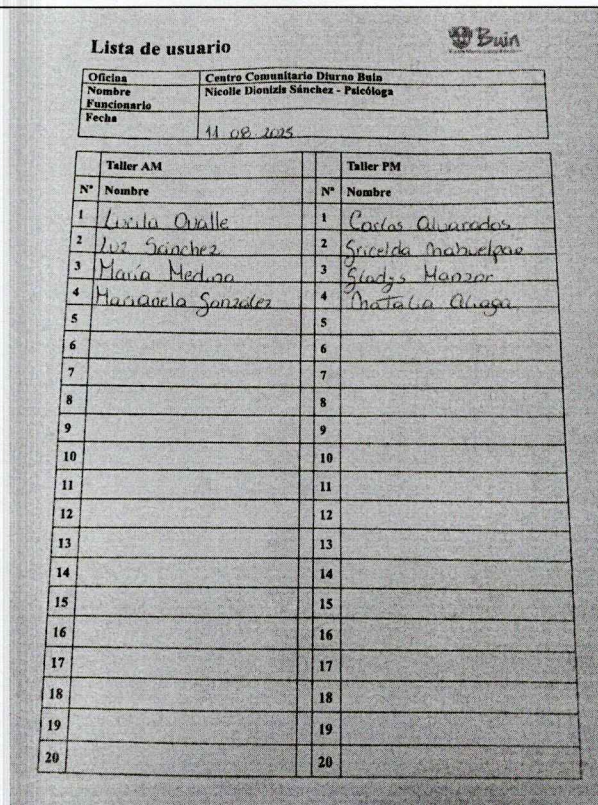 Buin
Lista de usuario
Oficina Centro Comunitario Diurno Buin
Nombre Funcionario Nicolle Dionizis Sánchez - Psicóloga
Fecha 11 08 2025
Taller AM Taller PM
N° Nombre N° Nombre
1 Lucila Ovalle 1 Carlos Alvarados
2 Luz Sánchez 2 Gricelda Mahuelpan
3 María Medina 3 Gladys Manzor
4 Marianela Gonzalez 4 Natalia Aliaga
5 5
6 6
7 7
8 8
9 9
10 10
11 11
12 12
13 13
14 14
15 15
16 16
17 17
18 18
19 19
20 20